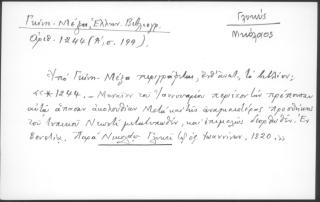 Γκίνη - Μέξα, Ελλην. Βιβλιογρ.
Αριθ. 1244 (Α', σ. 199).
Γλυκύς
Νικόλαος
Υπό Γκίνη - Μέξα περιγράφεται, το βιβλίον:
«*1244. — Μηναίον του Ιανουαρίου περιέχον την πρέπουσαν
αυτώ άπασαν ακολουθίαν Μετά και της αναγκαιοτέρας προσθήκης
του Τυπικού Νεωστί μετατυπωθέν, και επιμελώς διορθωθέν. Εν
Βενετία. Παρά Νικολάω Γλυκεί τω εξ Ιωαννίνων, 1820.»